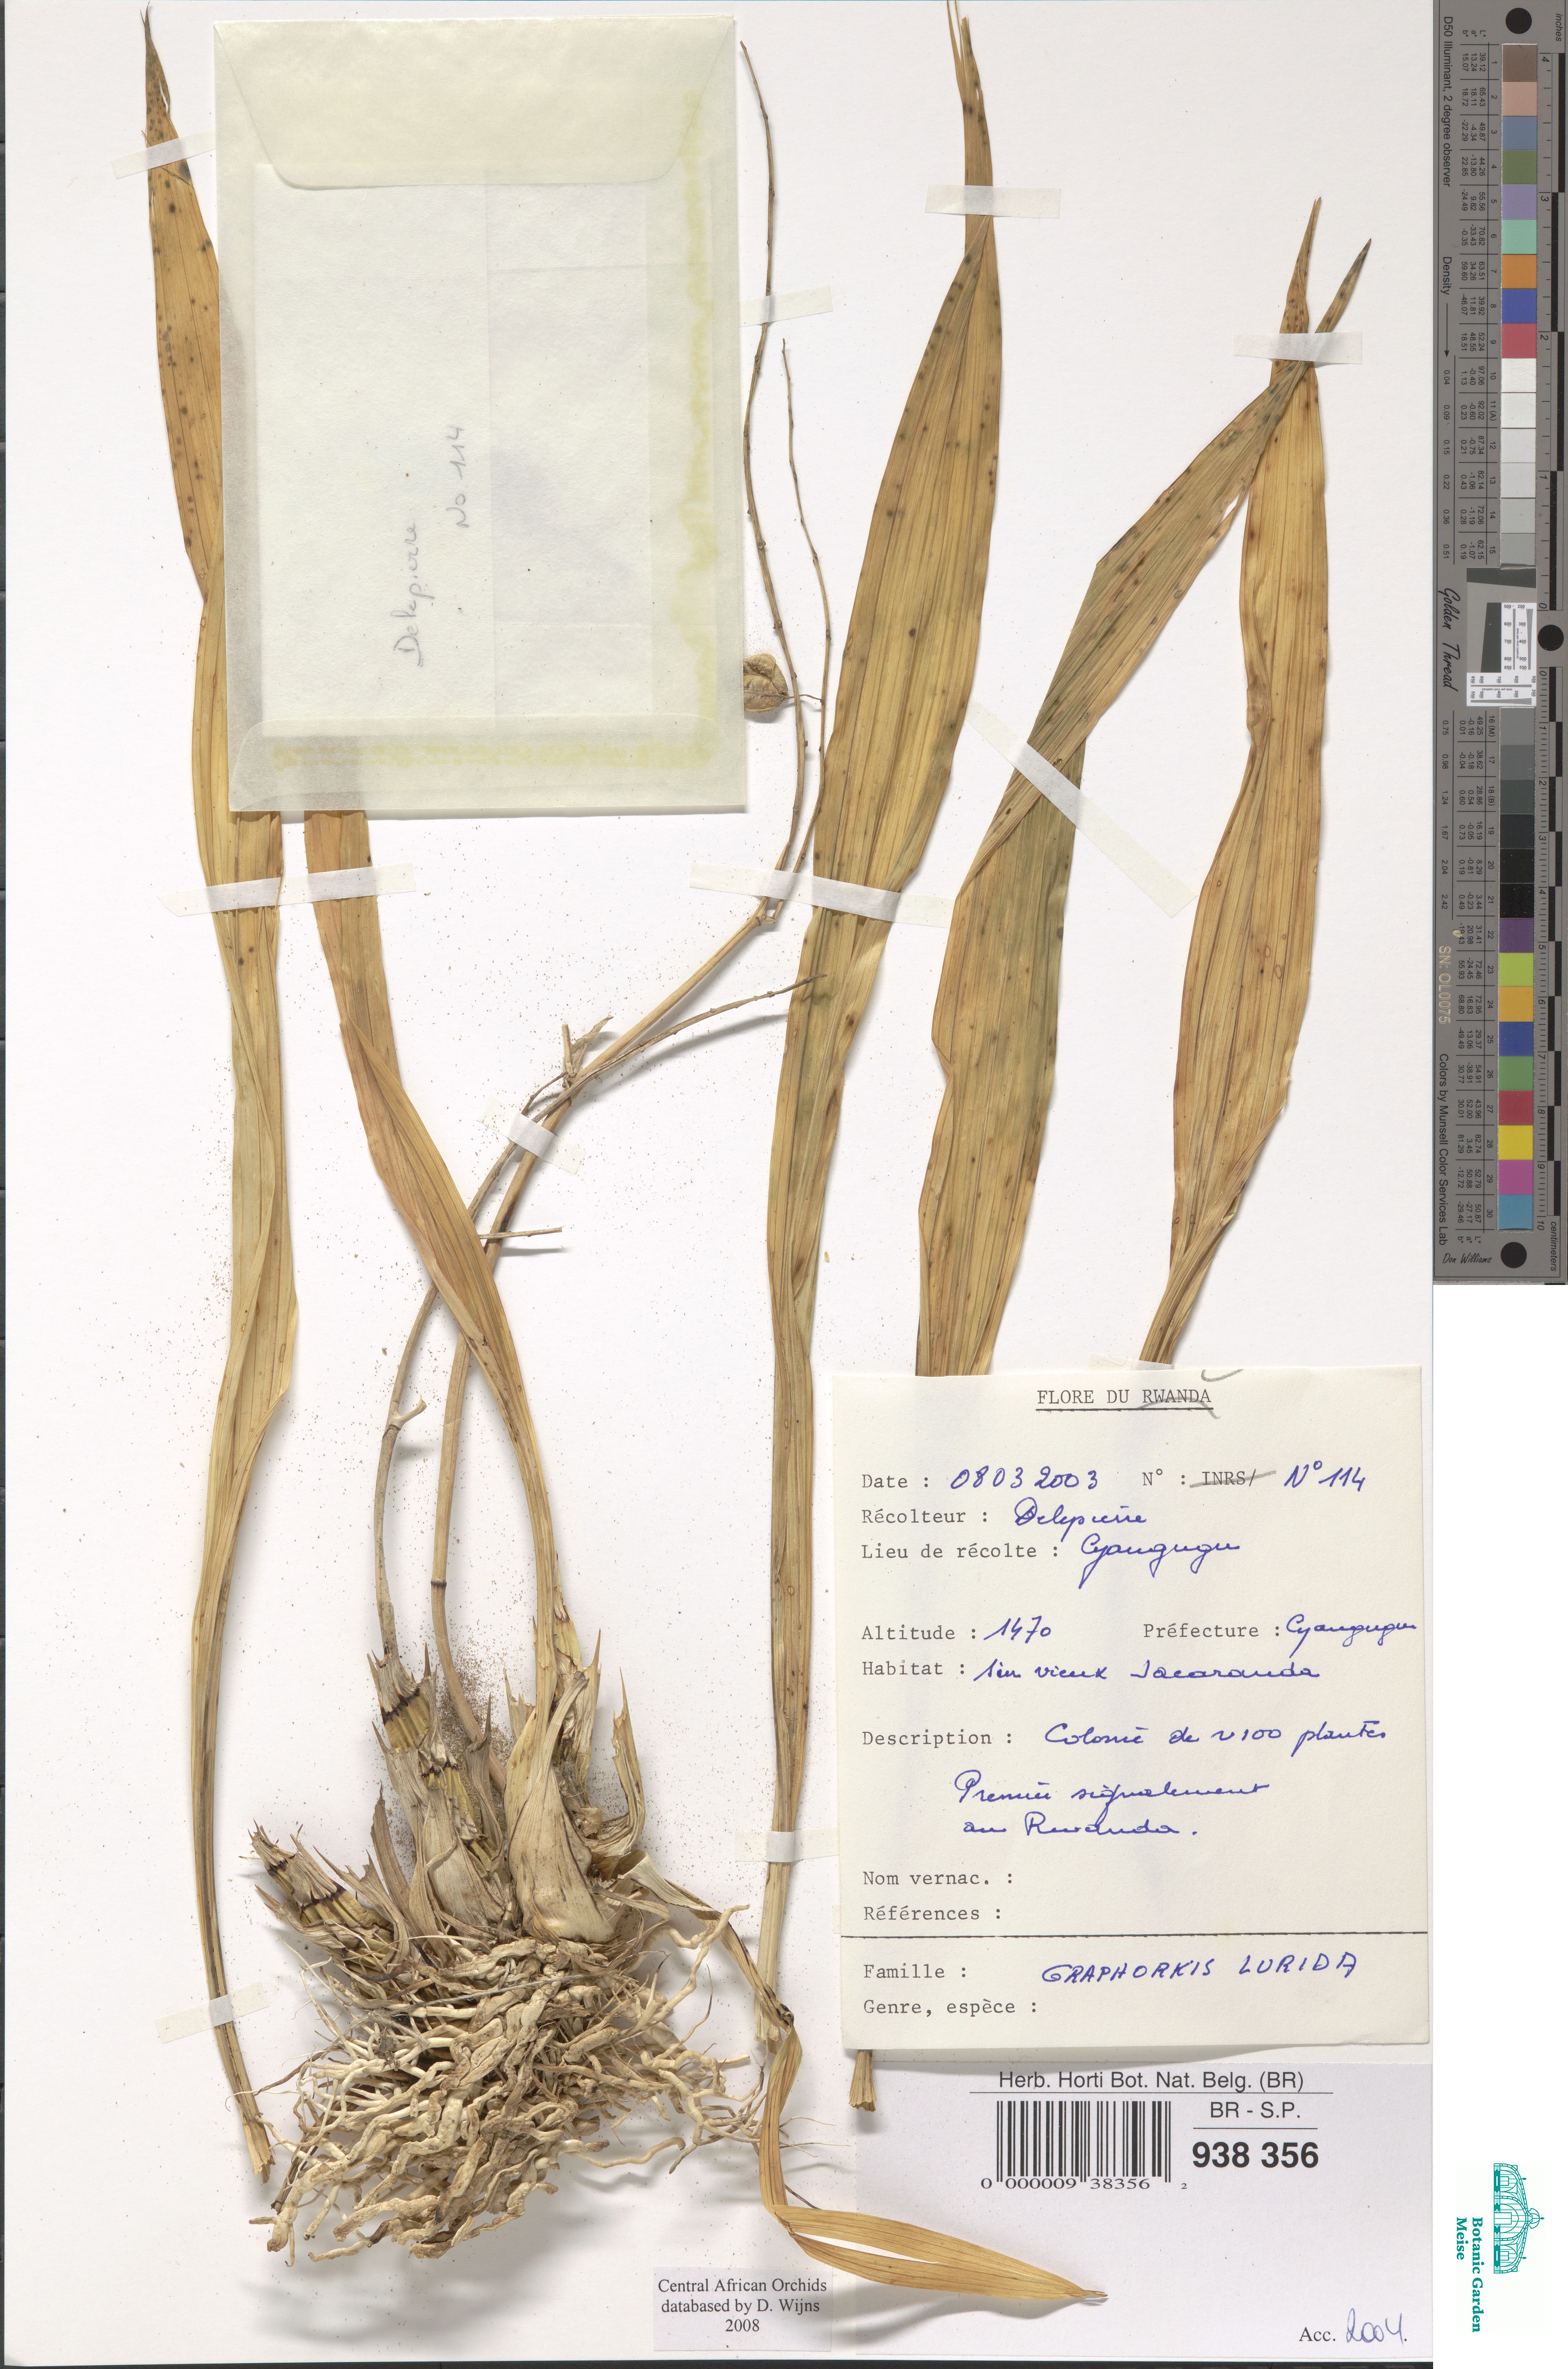 Delepierre
No 114
FLORE DU RWANDA
Date : 08 03 2003 N° : INRS/ N° 114
Récolteur : Delepierre
Lieu de récolte : Cyangugu
Altitude : 1470 Préfecture : Cyangugu
Habitat : Sur vieux Jacaranda
Description : Colonie de ~ 100 plantes
Premier signalement
au Rwanda.
Nom vernac. :
Références :
Famille : GRAPHORKIS LURIDA
Genre, espèce :
Herb. Horti Bot. Nat. Belg. (BR)
BR - S.P.
938 356
0 000009 38356 2
Central African Orchids
databased by D. Wijns
2008
Acc. 2004.
Botanic Garden
Meise
D50 Illuminant, 2 degree observer
Density
Golden Thread
SN: OL0075
Colors by Munsell Color Services Lab
Don Williams
inches
centimeters